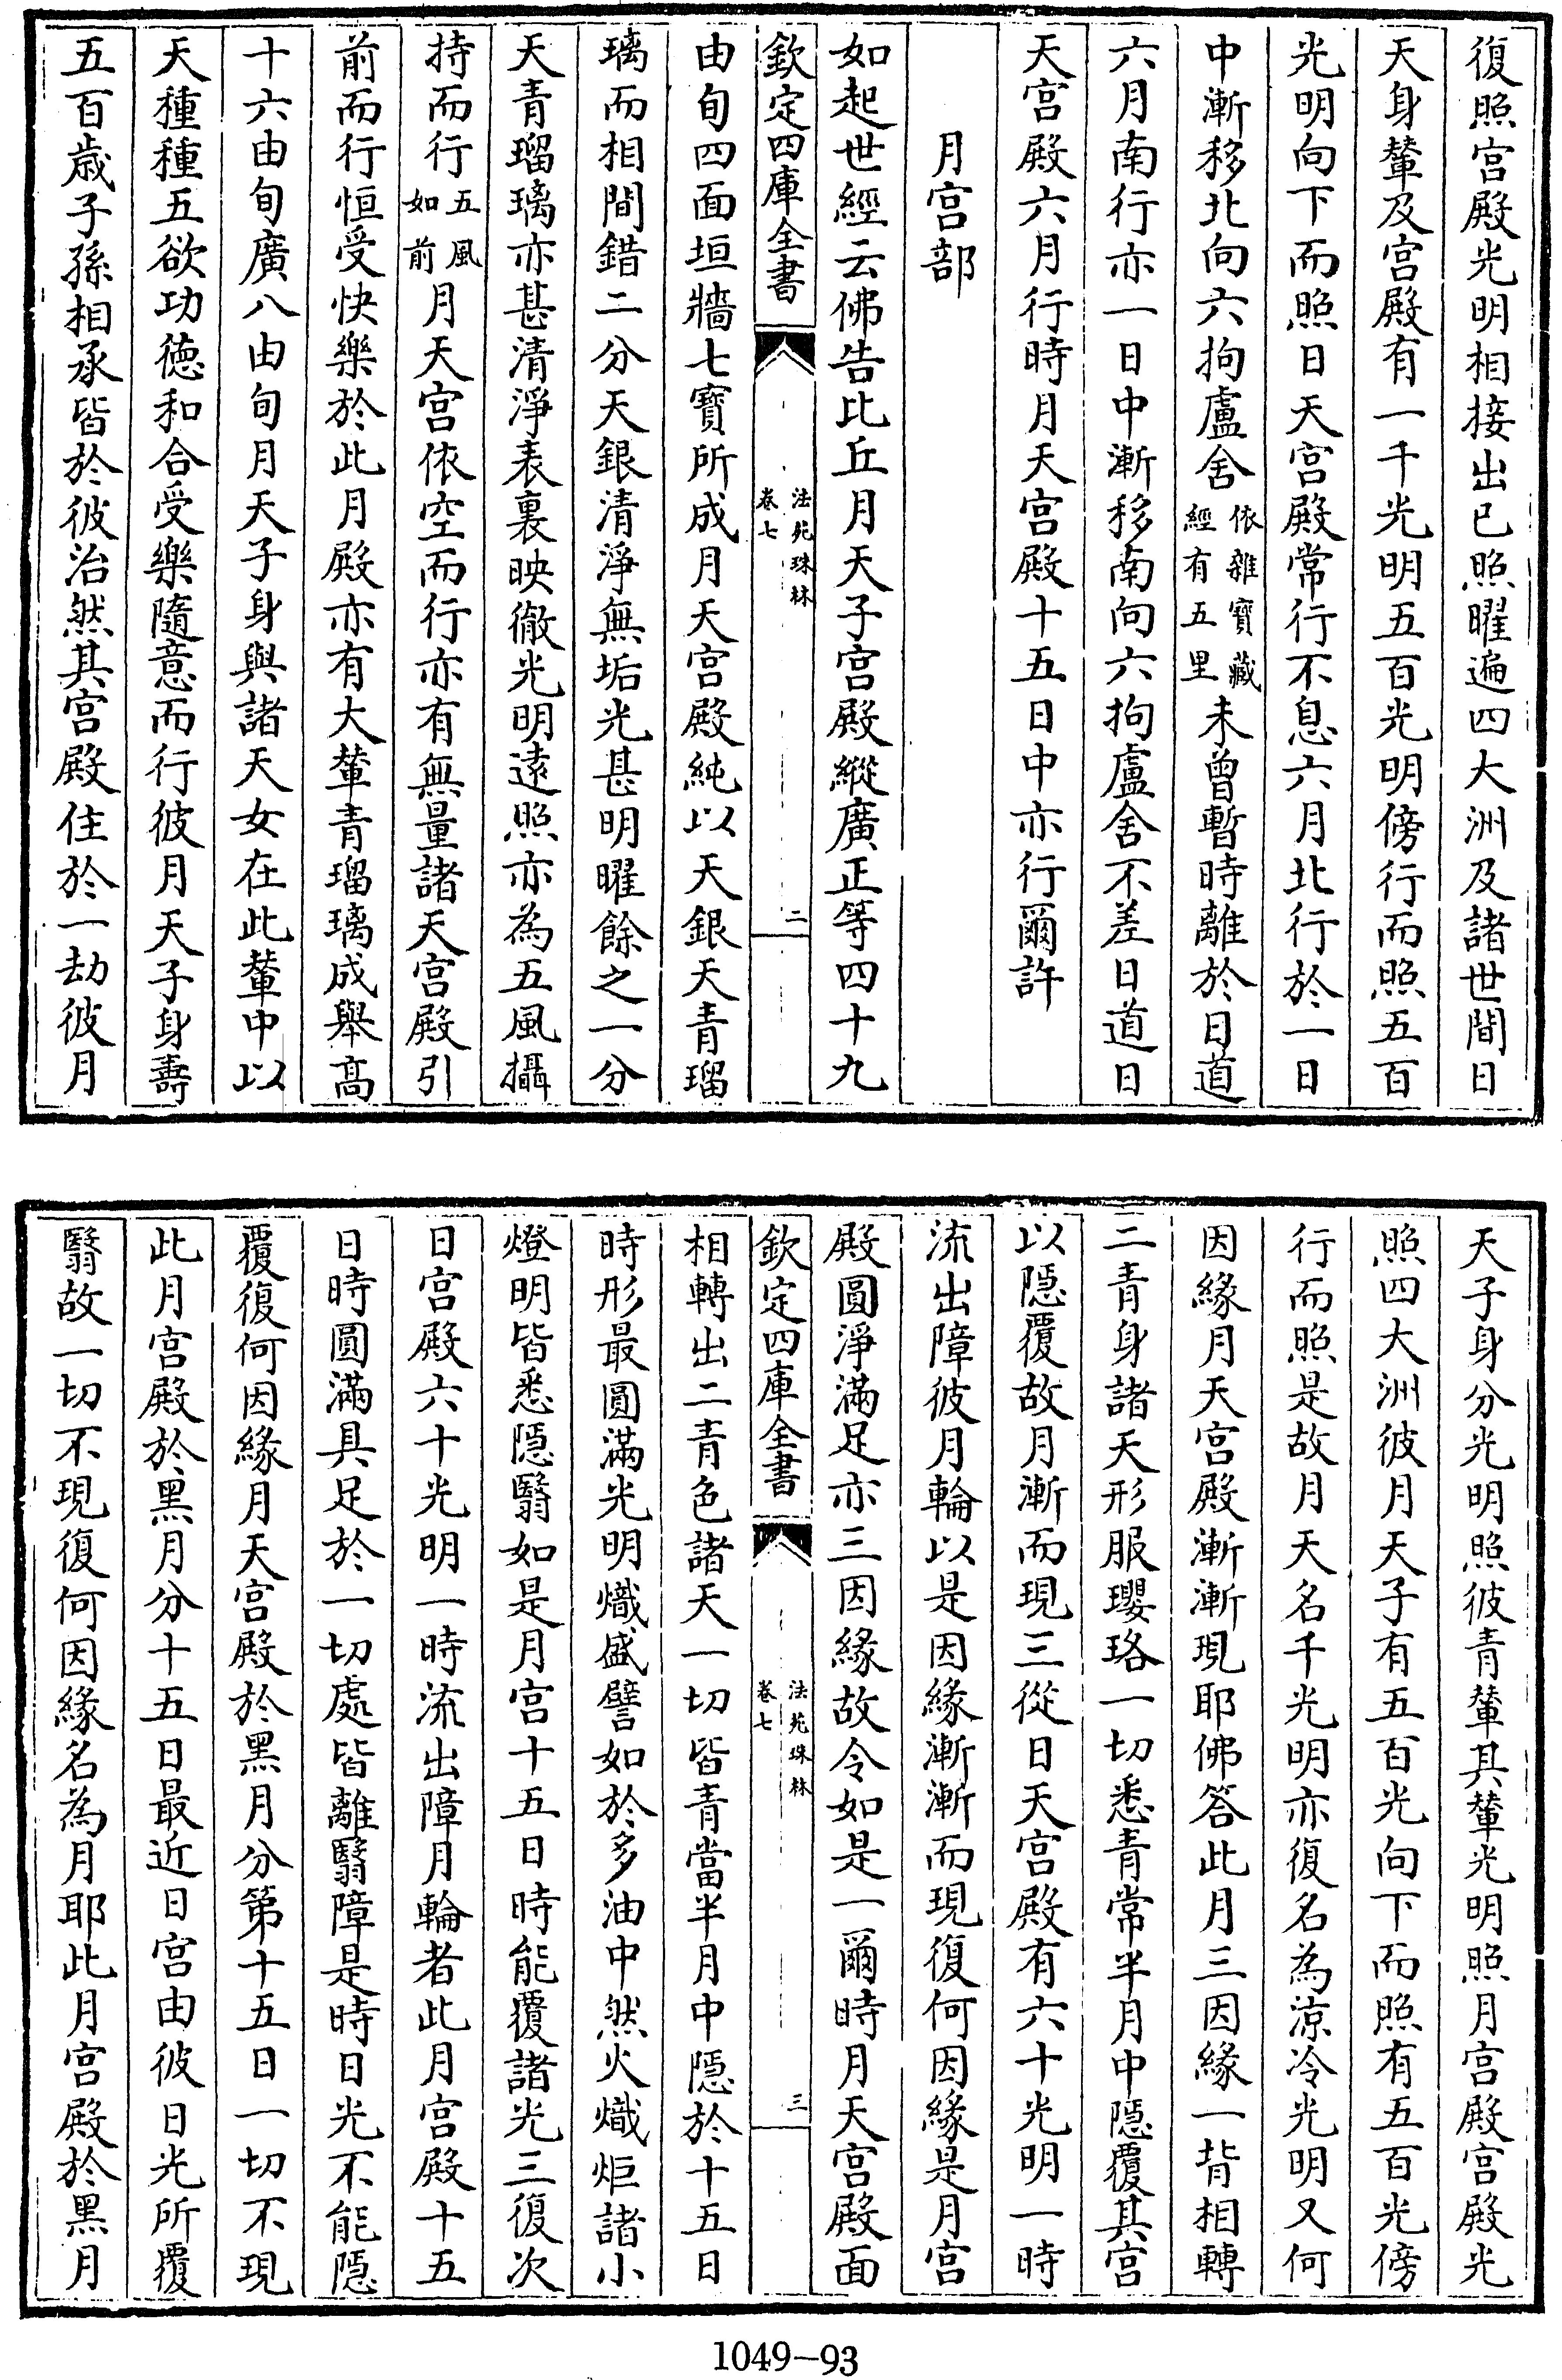 復照宫殿光明相接出已照曜遍四大洲及諸世間日
天身輦及宫殿有一千光明五百光明傍行而照五百
光明向下而照日天宫殿常行不息六月北行於一日
中漸移北向六拘盧舍依雜寶藏經有五里未曾暫時離於日道
六月南行亦一日中漸移南向六拘盧舍不差日道日
天宫殿六月行時月天宫殿十五日中亦行爾許
月宫部
如起世經云佛告比丘月天子宫殿縱廣正等四十九
欽定四庫全書
法苑珠林
卷七
二
由旬四面垣牆七寶所成月天宫殿純以天銀天青瑠
璃而相間錯二分天銀清淨無垢光甚明曜餘之一分
天青瑠璃亦甚清淨表裏映徹光明遠照亦為五風攝
持而行五風如前月天宫依空而行亦有無量諸天宫殿引
前而行恒受快樂於此月殿亦有大輦青瑠璃成舉髙
十六由旬廣八由旬月天子身與諸天女在此輦中以
天種種五欲功德和合受樂隨意而行彼月天子身壽
五百歲子孫相承皆於彼治然其宫殿住於一劫彼月
天子身分光明照彼青輦其輦光明照月宫殿宫殿光
照四大洲彼月天子有五百光向下而照有五百光傍
行而照是故月天名千光明亦復名為涼冷光明又何
因緣月天宫殿漸漸現耶佛答此月三因緣一背相轉
二青身諸天形服瓔珞一切悉青常半月中隱覆其宫
以隱覆故月漸而現三從日天宫殿有六十光明一時
流出障彼月輪以是因緣漸漸而現復何因緣是月宫
殿圓淨滿足亦三因緣故令如是一爾時月天宫殿面
欽定四庫全書
法苑珠林
卷七
三
相轉出二青色諸天一切皆青當半月中隱於十五日
時形最圓滿光明熾盛譬如於多油中然火熾炬諸小
燈明皆悉隱翳如是月宫十五日時能覆諸光三復次
日宫殿六十光明一時流出障月輪者此月宫殿十五
日時圓滿具足於一切處皆離翳障是時日光不能隱
覆復何因緣月天宫殿於黑月分第十五日一切不現
此月宫殿於黑月分十五日最近日宫由彼日光所覆
翳故一切不現復何因緣名為月耶此月宫殿於黑月
1049-93